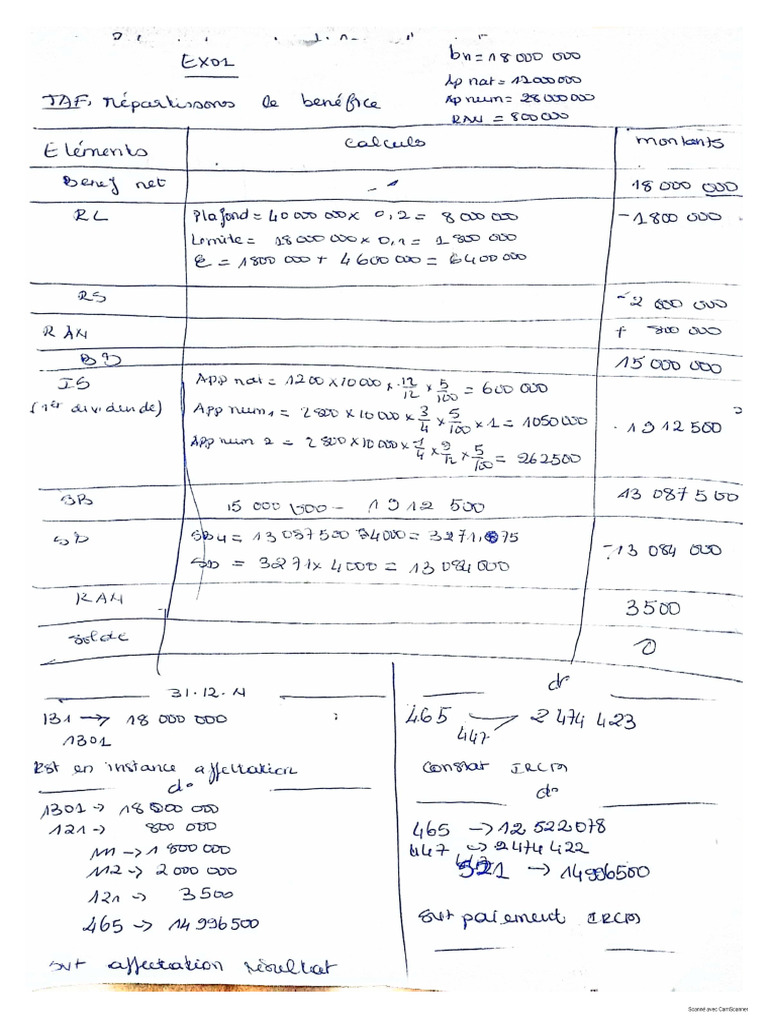 EX01
bn = 18 000 000
Ap nat = 12000000
Ap num = 28000000
RAN = 800000
TAF: Répartissons le benéfice
Eléments calculs montants
Benef net - 18 000 000
RL Plafond = 40 000 000 x 0,2 = 8 000 000 - 1800 000
Limite = 18 000 000 x 0,1 = 1 800 000
E = 1800 000 + 4600 000 = 6400 000
RS - 2 000 000
RAN + 800 000
BD 15 000 000
IS App nat = 1200 x 10000 x 12/12 x 5/100 = 600 000
(1er dividende) App num1 = 2800 x 10 000 x 3/4 x 5/100 x 1 = 1050000 - 1912500
App num 2 = 2800 x 10000 x 1/4 x 9/12 x 5/100 = 262500
SB 15 000 000 - 1912 500 13 087 500
SD SDu = 13087500 / 4000 = 3271,875 - 13 084 000
SD = 3271 x 4000 = 13 084 000
RAN 3500
Solde 0
31.12.N
131 → 18 000 000
1301
Rst en instance affectation
do
1301 → 18 000 000
121 → 800 000
111 → 1 800 000
112 → 2 000 000
121 → 3500
465 → 14 996 500
svt affectation résultat
do
465 → 2 474 423
447
Constat IRCM
do
465 → 12 522 078
447 → 2474 422
521 → 14996500
svt paiement IRCM
Scanné avec CamScanner